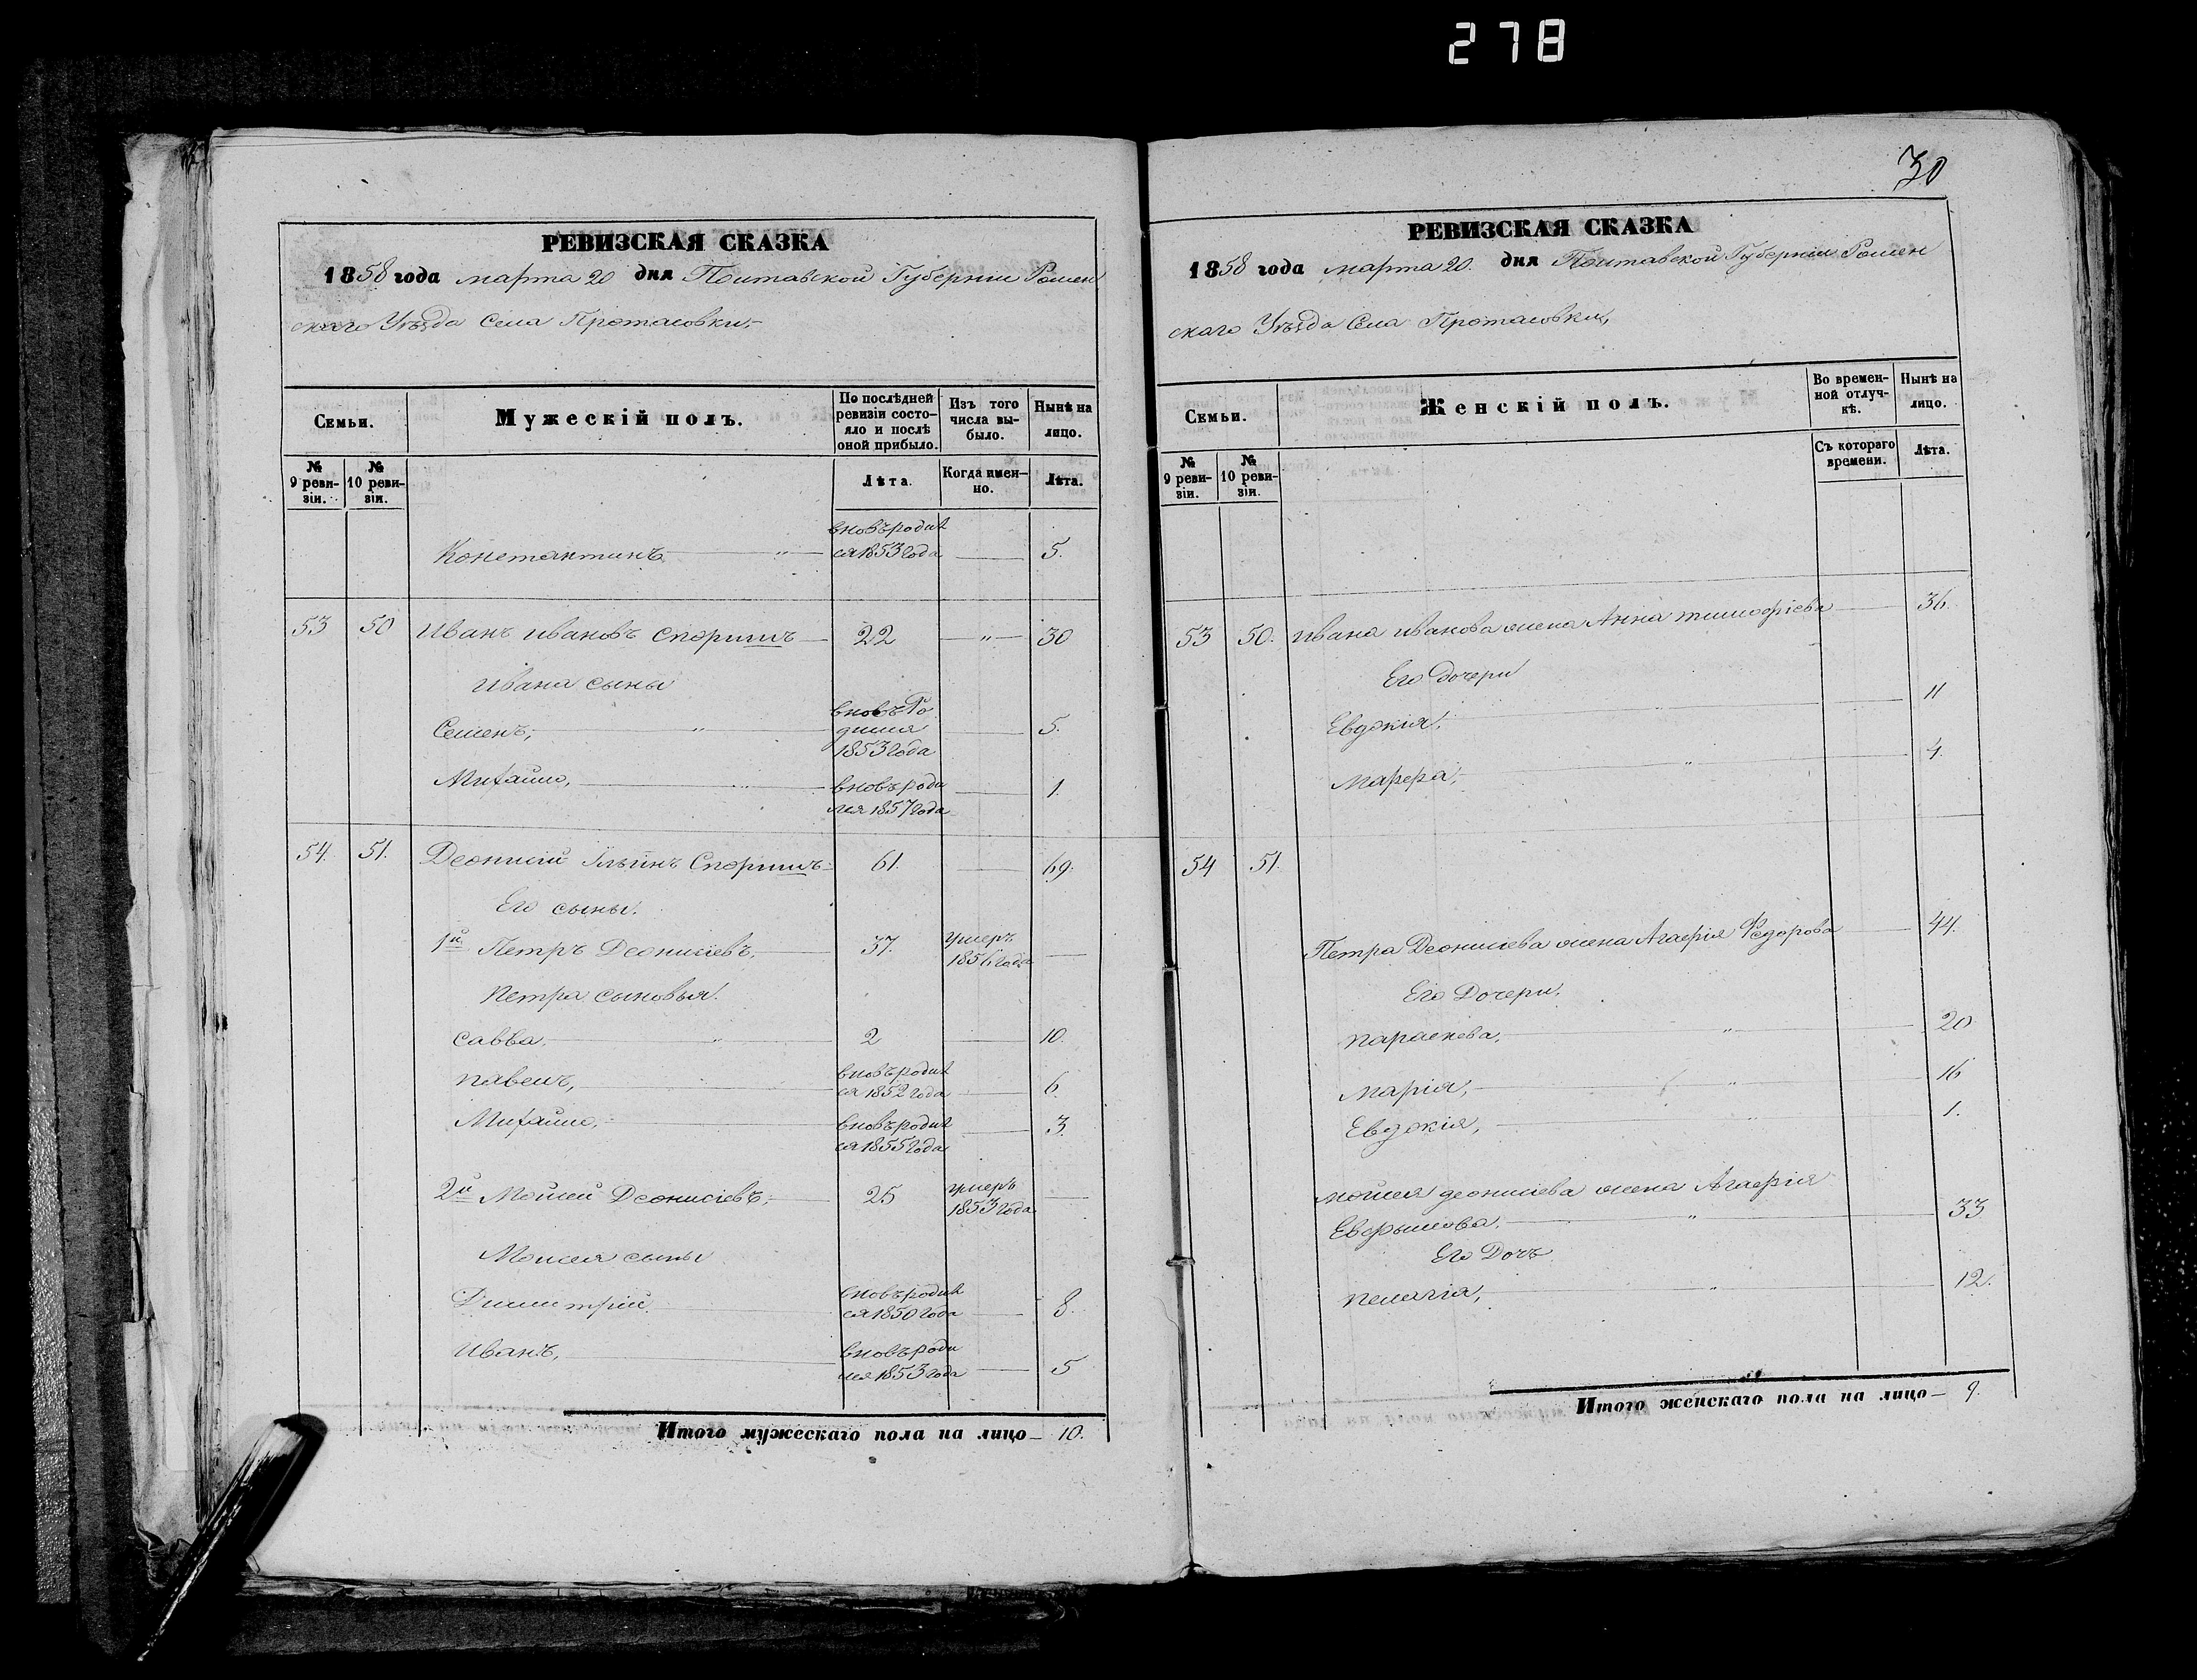 278
30
РЕВИЗСКАЯ СКАЗКА
1858 года марта 20 дня Полтавской Губернии Ромен
скаго Уѣзда Села Протасовки,
Семьи.
Мужескій полъ.
По послѣдней
ревизіи состо-
яло и послѣ
оной прибыло.
Изъ того
числа вы-
было.
Нынѣ на
лицо.
№
9 реви-
зіи.
№
10 реви-
зіи.
Лѣта.
Когда имен-
но.
Лѣта.
вновь родил
Константинъ „ ся 1853 года 5.
53 50 Иванъ Ивановъ Споришъ 22 „ 30
Ивана сыны
вновь Ро
Семенъ, „ дился 5.
1853 года
Михайло, „ вновь роди 1.
лся 1857 года
54. 51. Деонисій Ильинъ Споришъ 61. 69.
Его сыны.
1й Петръ Деонисіевъ, 37. умеръ
1856 года
Петра сыновья.
Савва, „ 2 10.
Павелъ, вновь родил
ся 1852 года 6.
Михайло, вновь родил 3.
ся 1855 года
2й Мойсей Деонисіевъ, 25 умеръ
1853 года
Моисея сыны
Димитрій вновь родил
ся 1850 года 8.
Иванъ, вновь роди
лся 1853 года 5
Итого мужескаго пола на лицо 10.
РЕВИЗСКАЯ СКАЗКА
1858 года марта 20. дня Полтавской Губерніи Ромен
скаго Уѣзда Села Протасовки,
Семьи.
Женскій полъ.
Во времен-
ной отлуч-
кѣ.
Нынѣ на
лицо.
№
9 реви-
зіи.
№
10 реви-
зіи.
Съ котораго
времени.
Лѣта.
53 50. Ивана Иванова жена Анна Тимофіева 36.
Его дочери
Евдокія, 11
Марфра, „ 4.
54 51.
Петра Деонисіева жена Агафія Федорова 44.
Его Дочери,
Параскева, „ 20
Марія, „ 16
Евдокія, „ 1.
Мойсея Деонисіева жена Агафія
„ 33
Его Дочь
Пелагія, „ 12.
Итого женскаго пола на лицо 9.